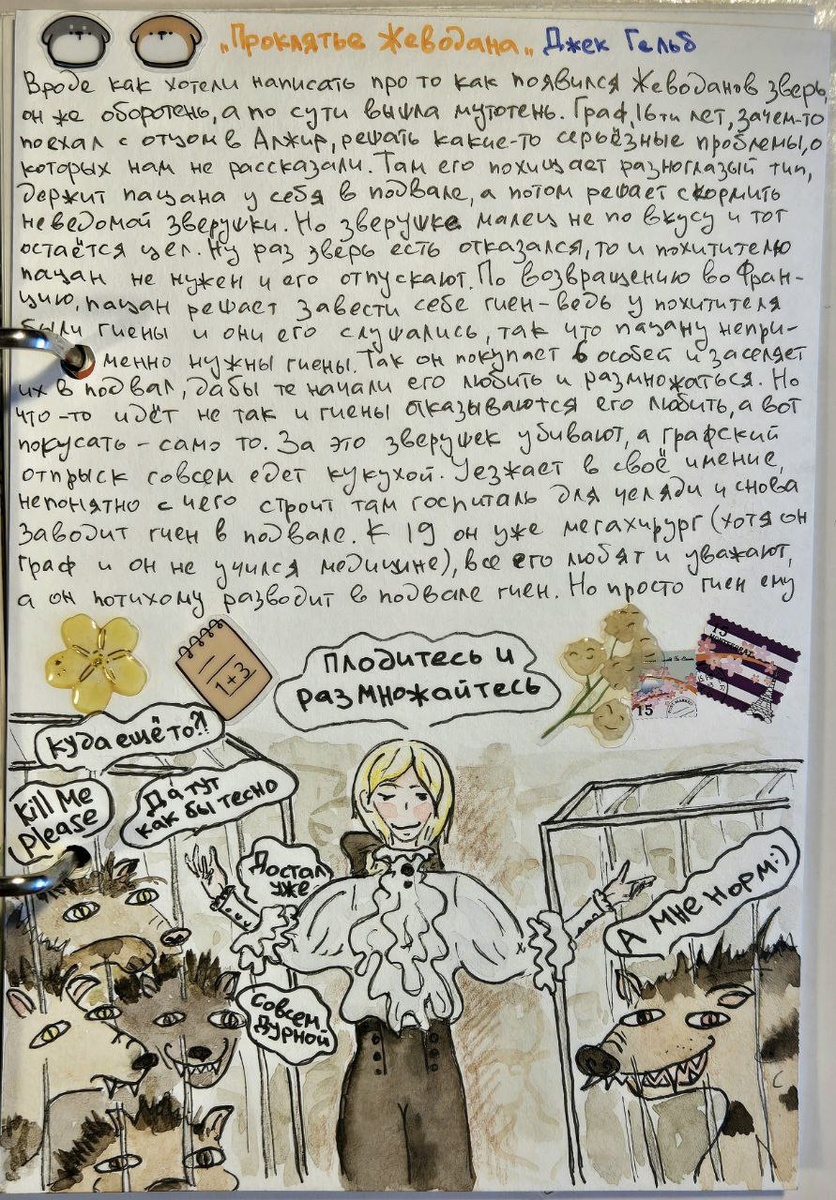 „Проклятье Жеводана„ Джек Гельб
Вроде как хотели написать про то как появился Жеводанов зверь,
он же оборотень, а по сути вышла мутотень. Граф, 16ти лет, зачем-то
поехал с отцом в Алжир, решать какие-то серьёзные проблемы, о
которых нам не рассказали. Там его похищает разноглазый тип,
держит пацана у себя в подвале, а потом решает скормить
неведомой зверушки. Но зверушке малец не по вкусу и тот
остаётся цел. Ну раз зверь есть отказался, то и похитителю
пацан не нужен и его отпускают. По возвращению во Фран-
цию, пацан решает завести себе гиен-ведь у похитителя
были гиены и они его слушались, так что пацану непри-
менно нужны гиены. Так он покупает 6 особей и заселяет
их в подвал, дабы те начали его любить и размножаться. Но
что-то идёт не так и гиены отказываются его любить, а вот
покусать - само то. За это зверушек убивают, а графский
отпрыск совсем едет кукухой. Уезжает в своё имение,
непонятно с чего строит там госпиталь для челяди и снова
заводит гиен в подвале. К 19 он уже мегахирург (хотя он
граф и он не учился медицине), все его любят и уважают,
а он потихому разводит в подвале гиен. Но просто гиен ему
1+3
Плодитесь и
размножайтесь
15
15
куда ещё то?!
Kill me
please
Да тут
как бы тесно
Достал
уже
А мне норм:)
Совсем
дурной